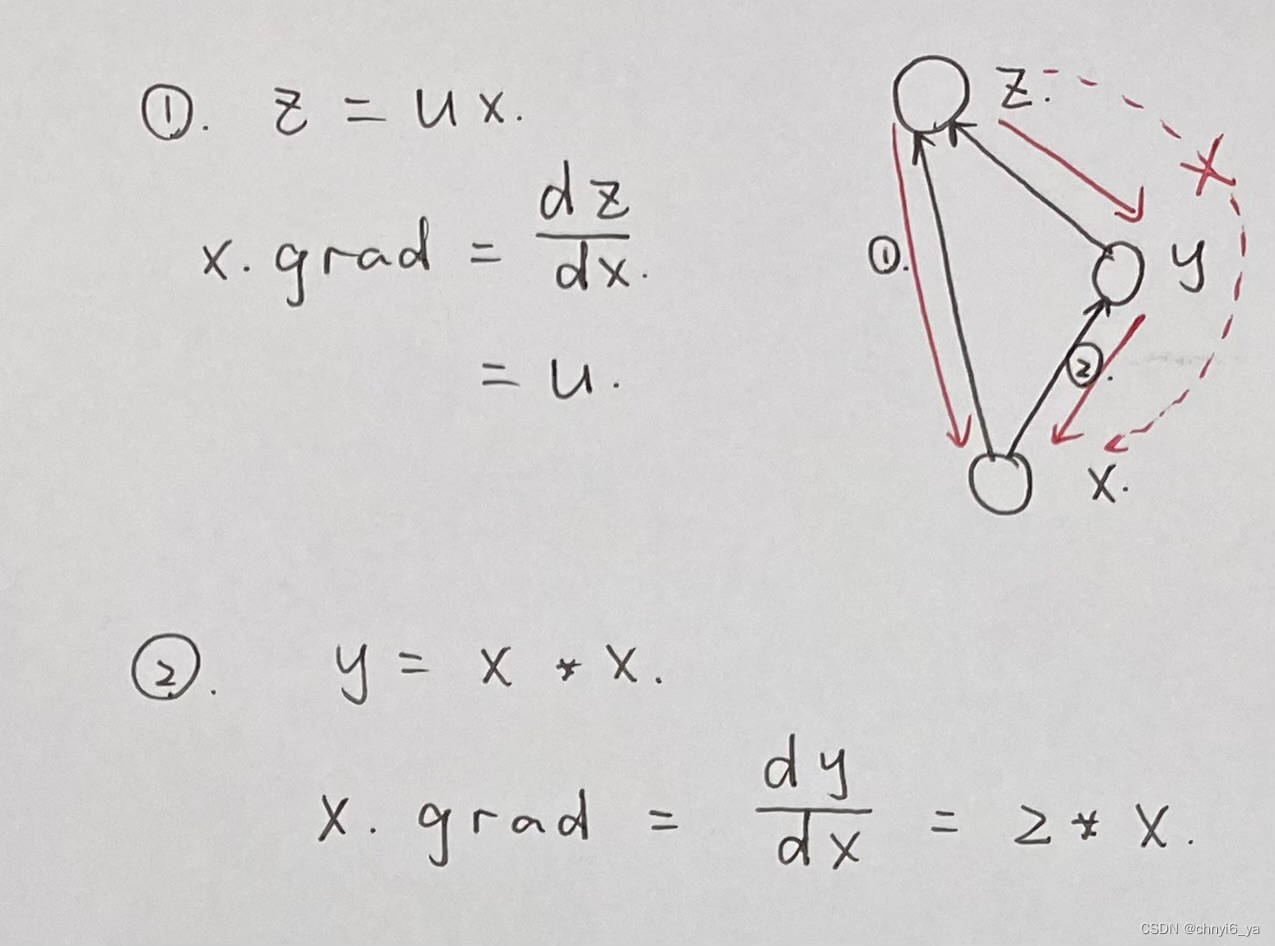 ①. z = u x.
x. grad = dz/dx.
= u.
z.
①.
y
②.
x.
②. y = x * x.
x. grad = dy/dx = 2 * x.
CSDN @chnyi6_ya